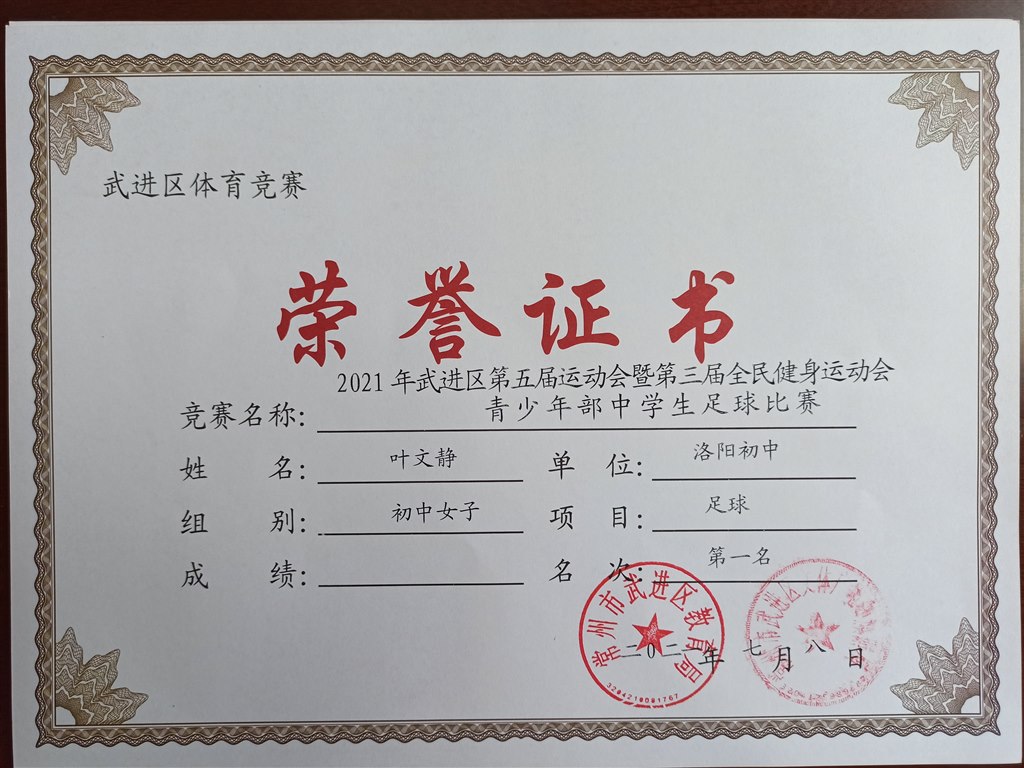 武进区体育竞赛
荣誉证书
2021年武进区第五届运动会暨第三届全民健身运动会
竞赛名称: 青少年部中学生足球比赛
姓 名: 叶文静 单 位: 洛阳初中
组 别: 初中女子 项 目: 足球
成 绩: 名 次: 第一名
常州市武进区教育局
二〇二一年七月八日
3204210091767